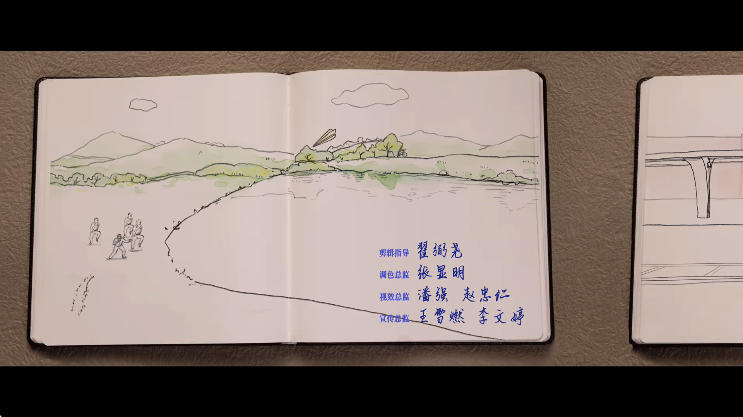 剪辑指导 翟弼尧
调色总监 张显明
视效总监 潘强 赵忠仁
宣传总监 王雪燃 李文婷